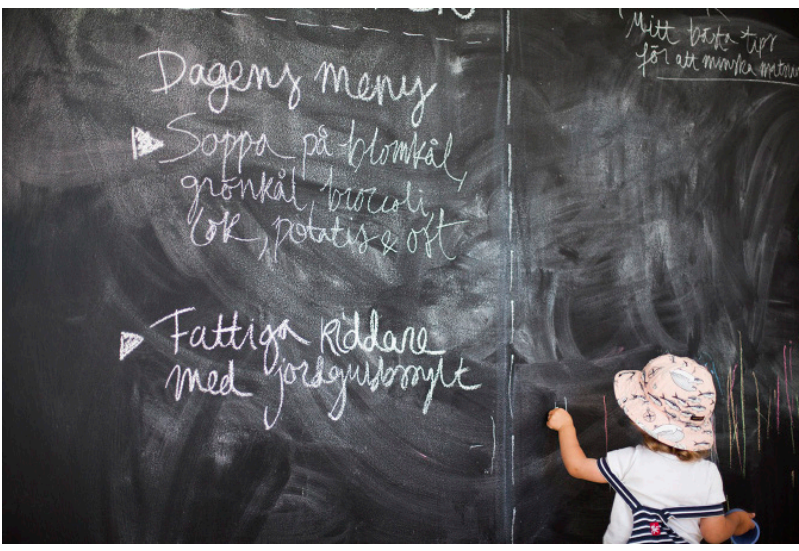 Dagens meny
Soppa på blomkål,
grönkål, broccoli,
lök, potatis & ost
Fattiga riddare
med jordgubbssylt
Mitt bästa tips
för att minska